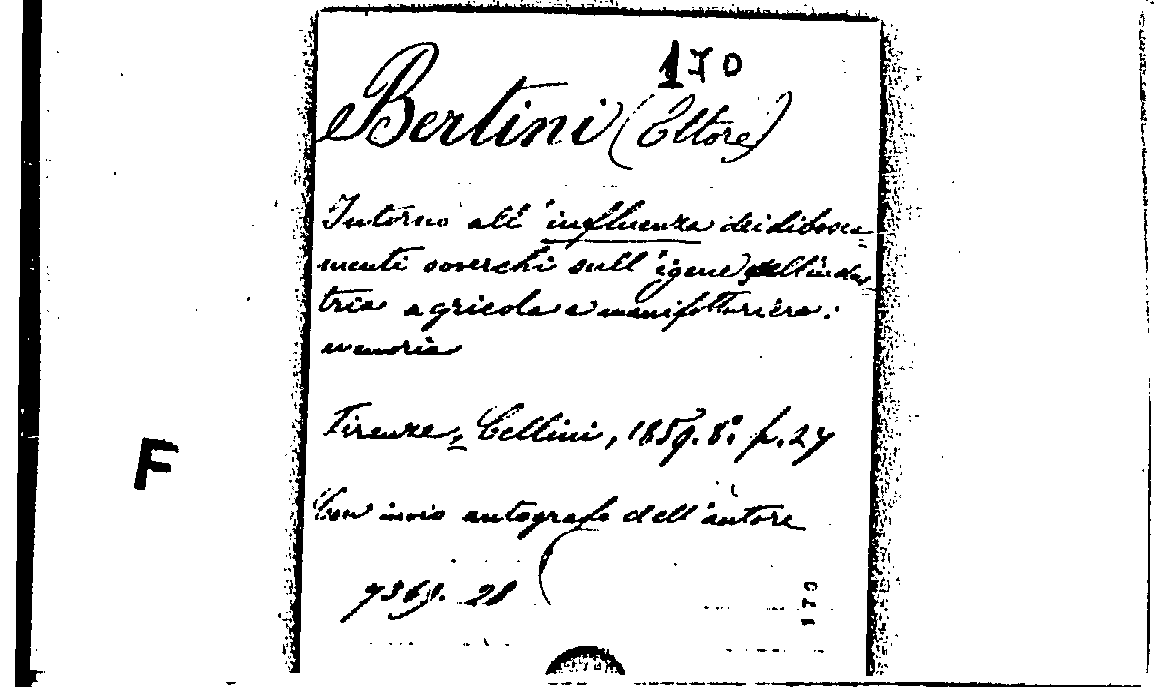 170
Bertini (Ettore)
Intorno all'influenza dei disbosca=
menti soverchi sull'igene, sull'indus
tria agricola e manifatturiera:
memoria
Firenze, Cellini, 1859. 8.° p. 27
F
Con invio autografo dell'autore
7369. 28
170